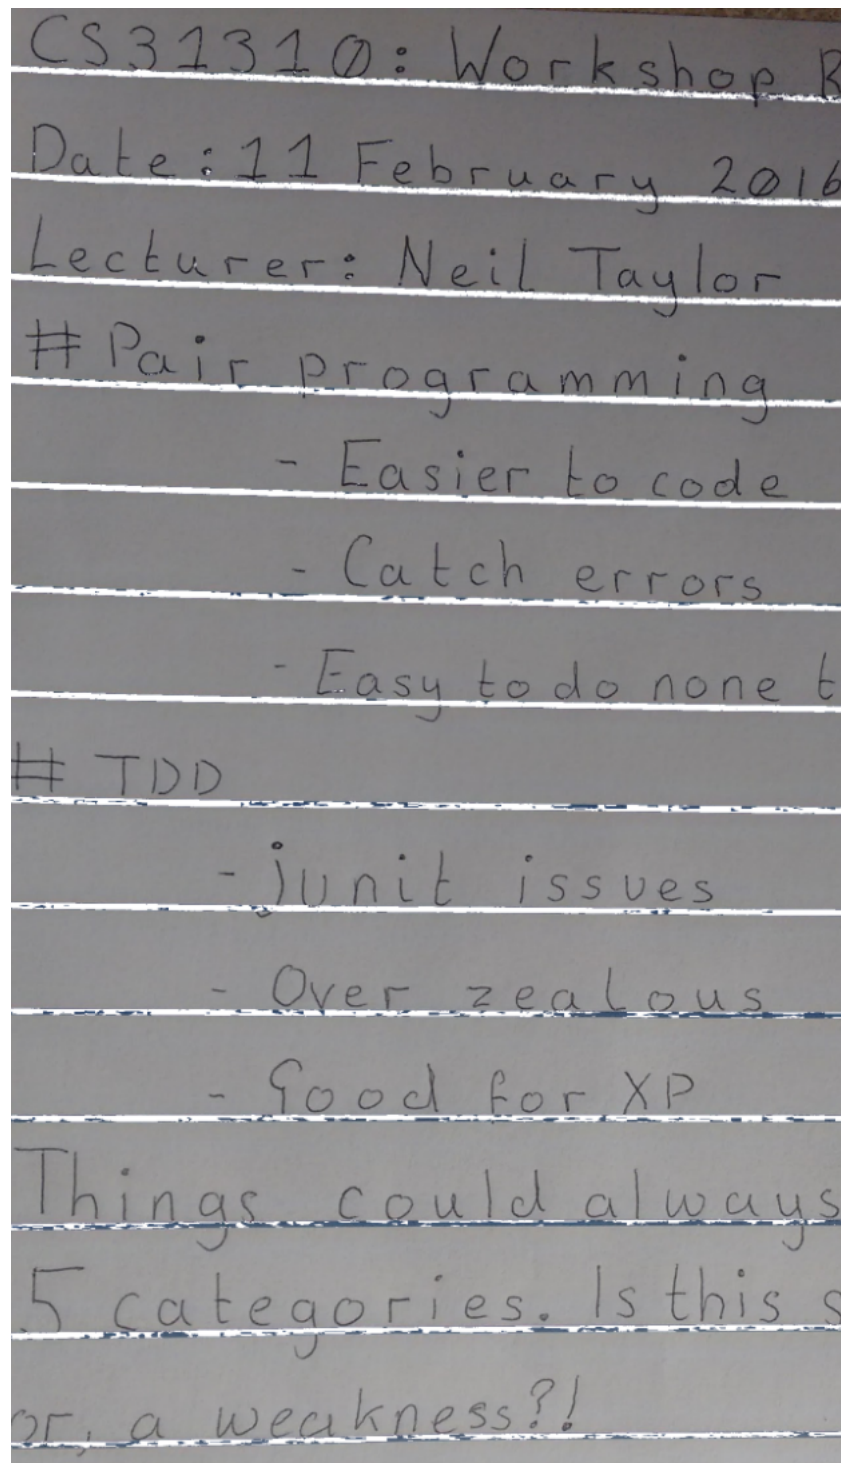 CS31310: Workshop
Date: 11 February 2016
Lecturer: Neil Taylor
# Pair programming
- Easier to code
- Catch errors
- Easy to do none
# TDD
- junit issues
- Over zealous
- Good for XP
Things could always
5 categories. Is this
or, a weakness?!